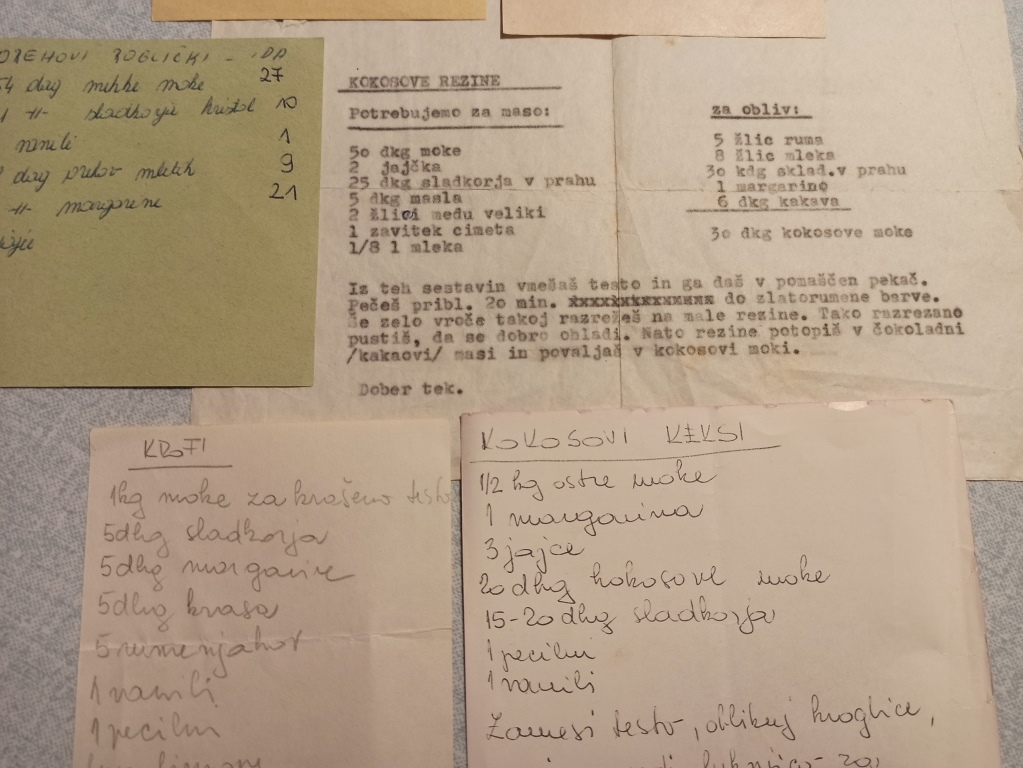 OREHOVI ROGLIČKI
dag mehke moke 27
sladkorja kristal 10
vanili 1
dag orehov mletih 9
margarine 21
KOKOSOVE REZINE
Potrebujemo za maso:
50 dkg moke
2 jajčka
25 dkg sladkorja v prahu
5 dkg masla
2 žlici medu veliki
1 zavitek cimeta
1/8 l mleka
za obliv:
5 žlic ruma
8 žlic mleka
30 kdg sklad.v prahu
1 margarino
6 dkg kakava
30 dkg kokosove moke
Iz teh sestavin vmešaš testo in ga daš v pomaščen pekač.
Pečeš pribl. 20 min. xxxxxxxxxxxxxx do zlatorumene barve.
Še zelo vroče takoj razrežeš na male rezine. Tako razrezano
pustiš, da se dobro ohladi. Nato rezine potopiš v čokoladni
/kakaovi/ masi in povaljaš v kokosovi moki.
Dober tek.
KROFI
1kg moke za krašeno testo
5dkg sladkorja
5dkg margarine
5dkg kvasa
5 rumenjakov
1 vanili
1 pecilni
KOKOSOVI KEKSI
1/2 kg ostre moke
1 margarina
3 jajce
20 dkg kokosove moke
15-20 dkg sladkorja
1 pecilni
1 vanili
Zamesi testo, oblikuj kroglice,
luknjico za